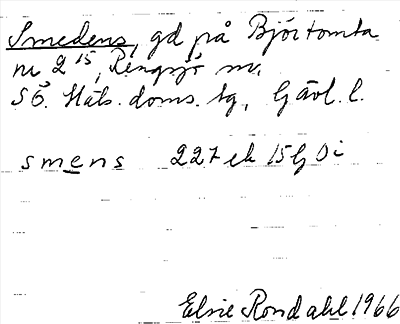 Smedens, gd på Björtomta
nr 2¹⁵, Rengsjö sn,
SÖ. Häls. doms. tg, Gävl. l.
smens 227 ek 15G Di
Elsie Rondahl 1966